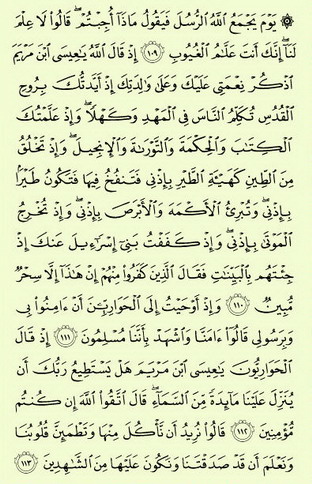 ۞ يَوْمَ يَجْمَعُ ٱللَّهُ ٱلرُّسُلَ فَيَقُولُ مَاذَآ أُجِبْتُمْ ۖ قَالُوا۟ لَا عِلْمَ
لَنَآ ۖ إِنَّكَ أَنتَ عَلَّٰمُ ٱلْغُيُوبِ ١٠٩ إِذْ قَالَ ٱللَّهُ يَٰعِيسَى ٱبْنَ مَرْيَمَ
ٱذْكُرْ نِعْمَتِى عَلَيْكَ وَعَلَىٰ وَٰلِدَتِكَ إِذْ أَيَّدتُّكَ بِرُوحِ
ٱلْقُدُسِ تُكَلِّمُ ٱلنَّاسَ فِى ٱلْمَهْدِ وَكَهْلًا ۖ وَإِذْ عَلَّمْتُكَ
ٱلْكِتَٰبَ وَٱلْحِكْمَةَ وَٱلتَّوْرَىٰةَ وَٱلْإِنجِيلَ ۖ وَإِذْ تَخْلُقُ
مِنَ ٱلطِّينِ كَهَيْـَٔةِ ٱلطَّيْرِ بِإِذْنِى فَتَنفُخُ فِيهَا فَتَكُونُ طَيْرًۢا
بِإِذْنِى ۖ وَتُبْرِئُ ٱلْأَكْمَهَ وَٱلْأَبْرَصَ بِإِذْنِى ۖ وَإِذْ تُخْرِجُ
ٱلْمَوْتَىٰ بِإِذْنِى ۖ وَإِذْ كَفَفْتُ بَنِىٓ إِسْرَٰٓءِيلَ عَنكَ إِذْ
جِئْتَهُم بِٱلْبَيِّنَٰتِ فَقَالَ ٱلَّذِينَ كَفَرُوا۟ مِنْهُمْ إِنْ هَٰذَآ إِلَّا سِحْرٌ
مُّبِينٌ ١١٠ وَإِذْ أَوْحَيْتُ إِلَى ٱلْحَوَارِيِّۦنَ أَنْ ءَامِنُوا۟ بِى
وَبِرَسُولِى قَالُوٓا۟ ءَامَنَّا وَٱشْهَدْ بِأَنَّنَا مُسْلِمُونَ ١١١ إِذْ قَالَ
ٱلْحَوَارِيُّونَ يَٰعِيسَى ٱبْنَ مَرْيَمَ هَلْ يَسْتَطِيعُ رَبُّكَ أَن
يُنَزِّلَ عَلَيْنَا مَآئِدَةً مِّنَ ٱلسَّمَآءِ ۖ قَالَ ٱتَّقُوا۟ ٱللَّهَ إِن كُنتُم
مُّؤْمِنِينَ ١١٢ قَالُوا۟ نُرِيدُ أَن نَّأْكُلَ مِنْهَا وَتَطْمَئِنَّ قُلُوبُنَا
وَنَعْلَمَ أَن قَدْ صَدَقْتَنَا وَنَكُونَ عَلَيْهَا مِنَ ٱلشَّٰهِدِينَ ١١٣